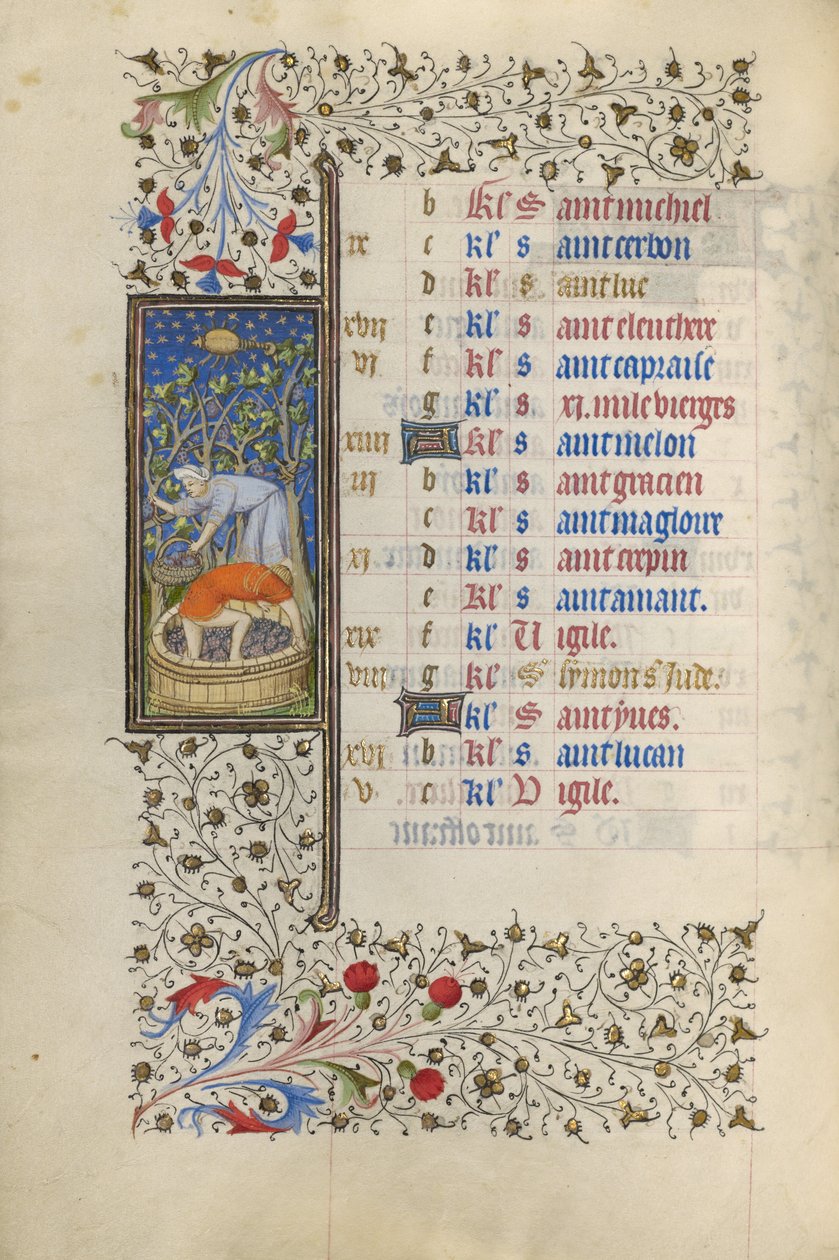 b kl' S aint michiel
ix c kl' s aint cerbon
d kl' s aint luc
xvij e kl' s aint eleuthere
vj f kl' s aint capraise
g kl' s xj. mile vierges
xiiij A kl' s aint melon
iij b kl' s aint gracien
c kl' s aint magloire
xj d kl' s aint crepin
e kl' s aint amant.
xix f kl' U igile.
viij g kl' S' symon s' Jude.
A kl' S aint yues.
xvj b kl' s aint lucan
v c kl' V igile.